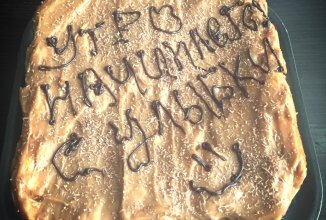 УТРО
НАЧИНАЕТСЯ
С УЛЫБКИ